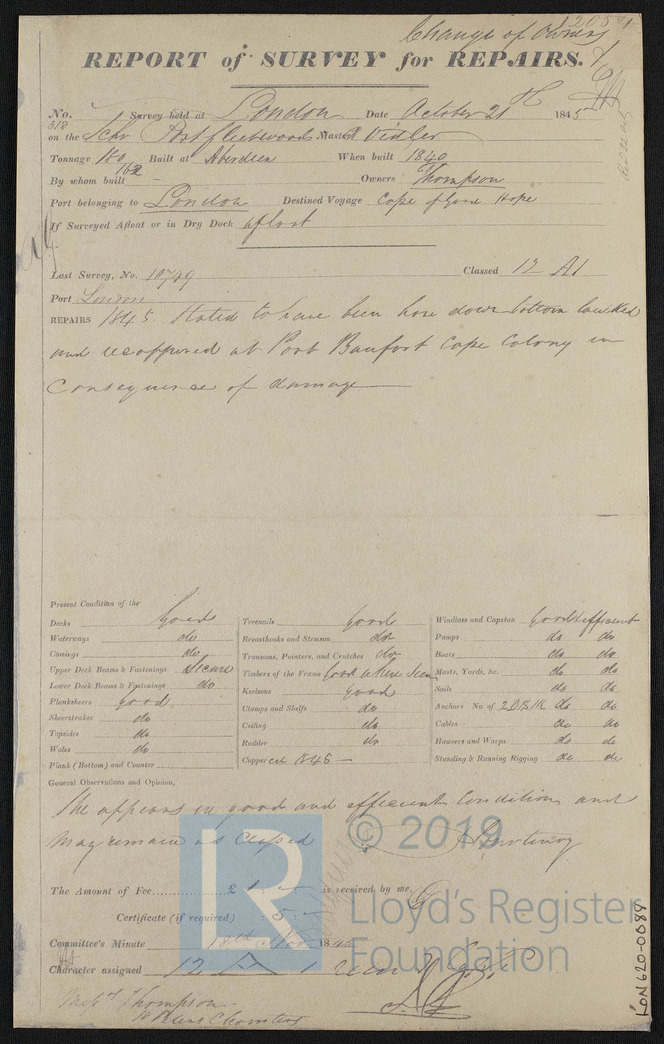 Change of Owners
REPORT of SURVEY for REPAIRS.
No. 318 Survey held at London Date October 21 1845
on the Schr Port fleetwood Master Vidler
Tonnage 180 162 Built at Aberdeen When built 1840
By whom built — Owners Thompson
Port belonging to London Destined Voyage Cape of Good Hope
If Surveyed Afloat or in Dry Dock afloat
Last Survey, No. 10749 Classed 12 A1
Port London
REPAIRS 1845. Stated to have been hove down bottom caulked
and recoppered at Port Beaufort Cape Colony in
Consequence of damage
Present Condition of the
Decks Good
Waterways do
Comings do
Upper Deck Beams & Fastenings Secure
Lower Deck Beams & Fastenings do
Planksheers good
Sheerstrakes do
Topsides do
Wales do
Plank (Bottom) and Counter
Treenails good
Breasthooks and Stemson do
Transoms, Pointers, and Crutches do
Timbers of the Frame Good where seen
Keelsons good
Clamps and Shelfs do
Ceiling do
Rudder do
Copper 1845 —
Windlass and Capstan Good & efficient
Pumps do do
Boats do do
Masts, Yards, &c. do do
Sails do do
Anchors No. of do do
Cables do do
Hawsers and Warps do do
Standing & Running Rigging do do
General Observations and Opinion,
She appears in good and efficient Condition and
may remain as Classed
The Amount of Fee 2 is received by me,
Certificate (if required) : 5 : -
Committee's Minute 18th Nov 1845
Character assigned 12 A 1
Thompson
LR © 2019
Lloyd's Register
Foundation
LON620-0089